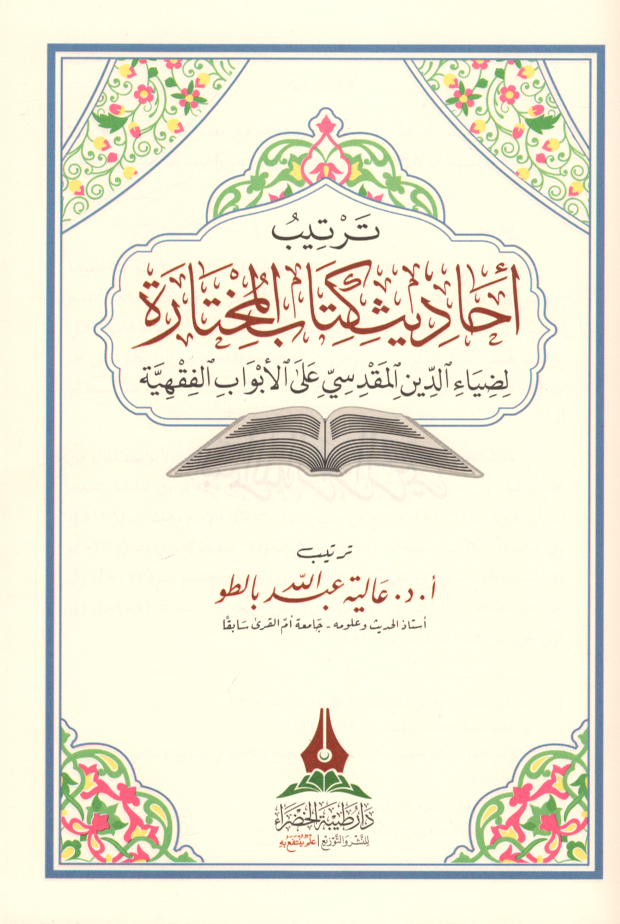 تَرْتِيبُ
أَحَادِيثِ كِتَابِ المُخْتَارَةِ
لِضِيَاءِ الدِّينِ المَقْدِسِيِّ عَلَى الأَبْوَابِ الفِقْهِيَّة
ترتيب
أ.د. عالية عبد الله بالطو
أستاذ الحديث وعلومه - جامعة أم القرى سابقًا
دار طيبة الخضراء
للنشر والتوزيع | علم ينتفع به